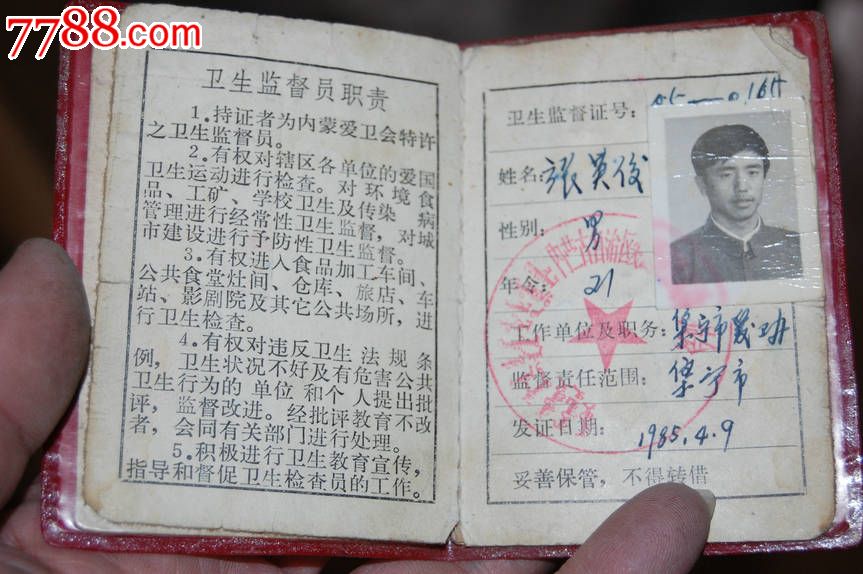 7788.com
卫生监督员职责
1.持证者为内蒙爱卫会特许
之卫生监督员。
2.有权对辖区各单位的爱国
卫生运动进行检查。对环境食
品、工矿、学校卫生及传染病
管理进行经常性卫生监督,对城
市建设进行予防性卫生监督。
3.有权进入食品加工车间、
公共食堂灶间、仓库、旅店、车
站、影剧院及其它公共场所,进
行卫生检查。
4.有权对违反卫生法规条
例,卫生状况不好及有危害公共
卫生行为的单位和个人提出批
评,监督改进。经批评教育不改
者,会同有关部门进行处理。
5.积极进行卫生教育宣传,
指导和督促卫生检查员的工作。
卫生监督证号:
姓名:张英俊
性别:男
年令:21
工作单位及职务:集宁市
监督责任范围:集宁市
发证日期:1985.4.9
妥善保管,不得转借